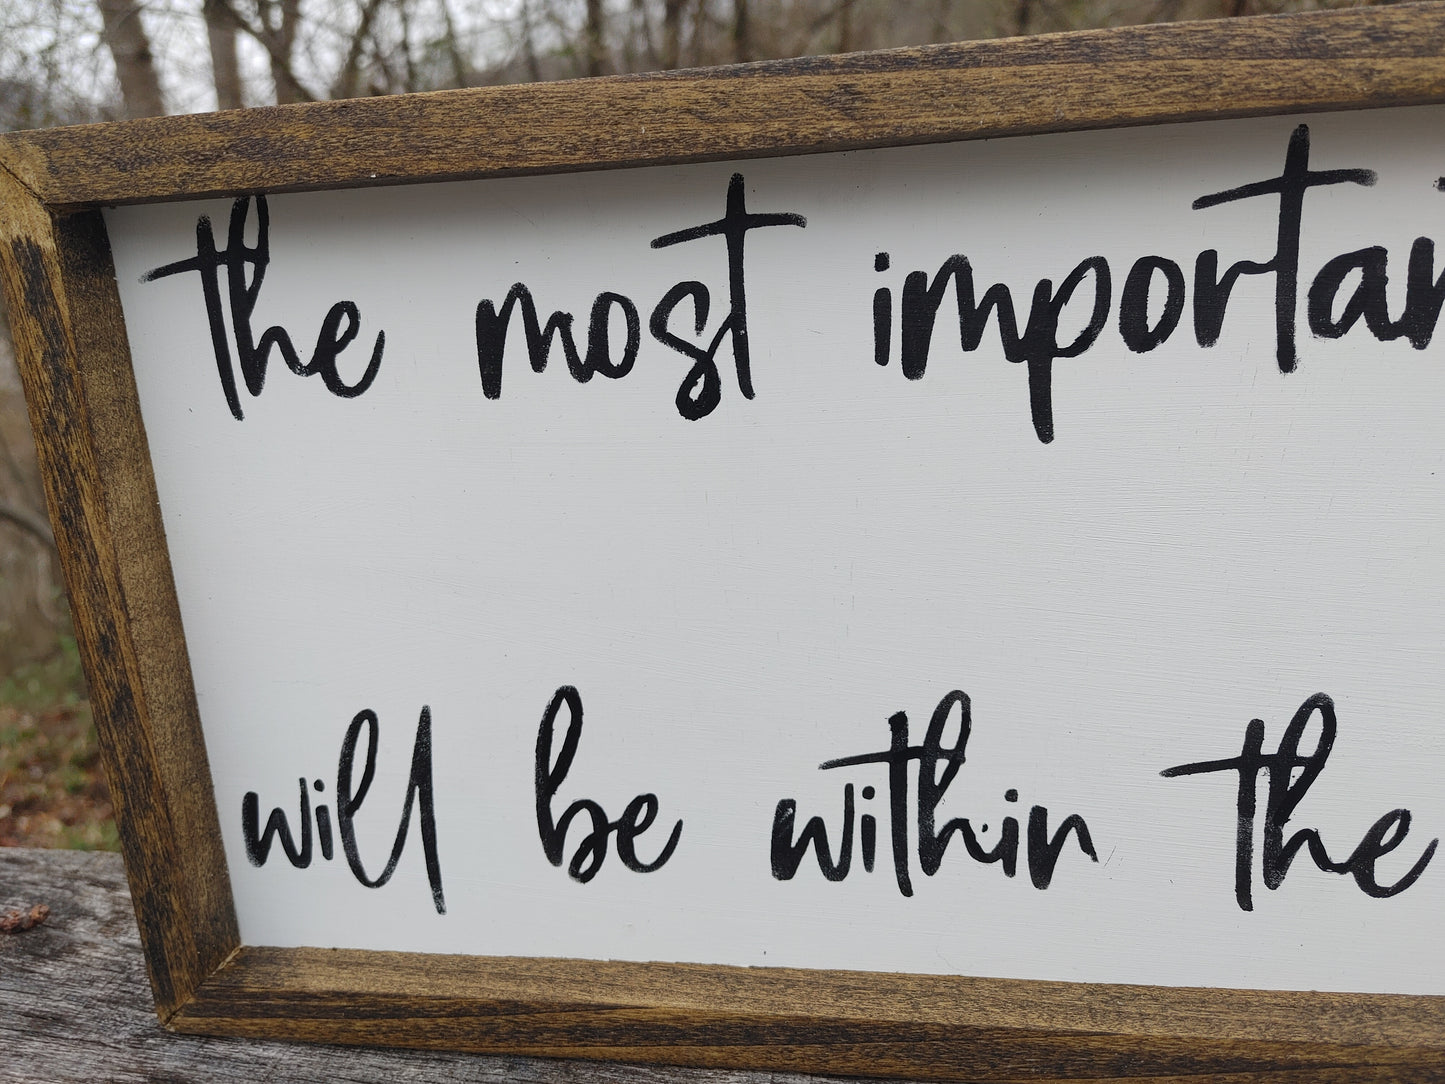 the most importan
will be within the